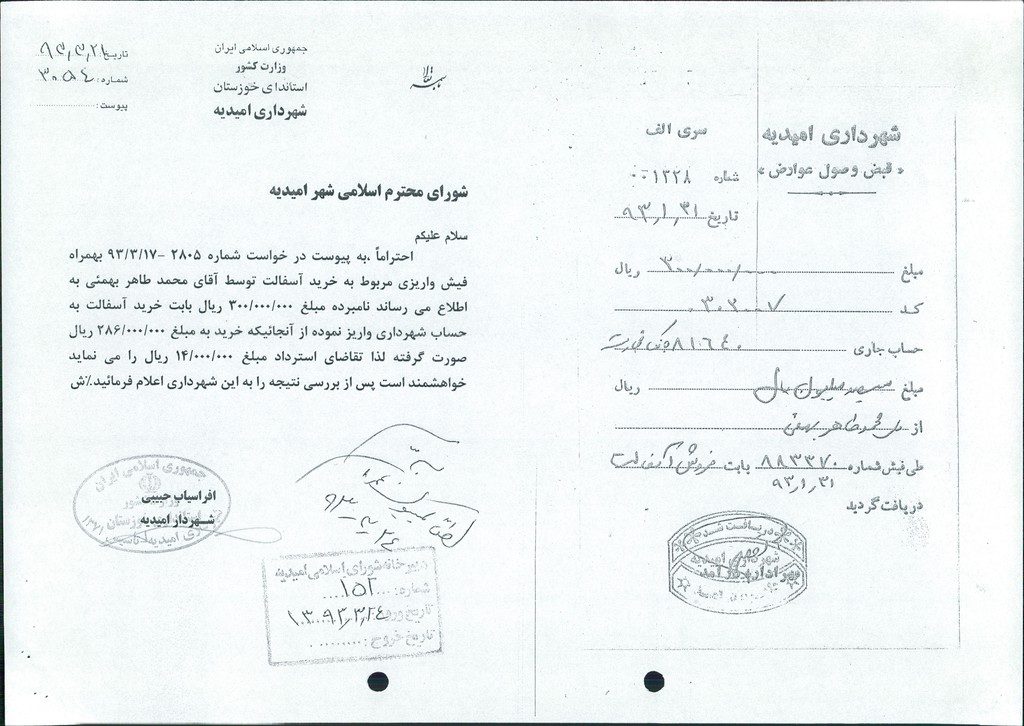 جمهوری اسلامی ایران
وزارت کشور
استاندای خوزستان
شهرداری امیدیه
تاریخ: ۹۳,۳,۲۱
شماره: ۳۰۵۴
پیوست:
شورای محترم اسلامی شهر امیدیه
سلام علیکم
احتراماً ،به پیوست در خواست شماره ۲۸۰۵ -۹۳/۳/۱۷ بهمراه
فیش واریزی مربوط به خرید آسفالت توسط آقای محمد طاهر بهمئی به
اطلاع می رساند نامبرده مبلغ ۳۰۰/۰۰۰/۰۰۰ ریال بابت خرید آسفالت به
حساب شهرداری واریز نموده از آنجائیکه خرید به مبلغ ۲۸۶/۰۰۰/۰۰۰ ریال
صورت گرفته لذا تقاضای استرداد مبلغ ۱۴/۰۰۰/۰۰۰ ریال را می نماید
خواهشمند است پس از بررسی نتیجه را به این شهرداری اعلام فرمائید.٪ش
جمهوری اسلامی ایران
افراسیاب حبیبی
شهردار امیدیه
دبیرخانه شورای اسلامی امیدیه
شماره: ۱۵۲
تاریخ ورود: ۱۳۹۳,۳,۲۴
تاریخ خروج:
شهرداری امیدیه
سری الف
« قبض وصول عوارض »
شماره ۰۰۱۳۲۸
تاریخ ۹۳,۱,۳۱
مبلغ ۳۰۰/۰۰۰/۰۰۰ ریال
کد ۳۰۲۰۰۷
حساب جاری ۸۱۶۴۰ بانک تجارت
مبلغ سیصد میلیون ریال ریال
از محمد طاهر بهمئی
طی فیش شماره ۸۸۳۳۷۰ بابت فروش آسفالت
۹۳,۱,۳۱
دریافت گردید
دریافت شد
شهرداری امیدیه
مهر اداره درآمد